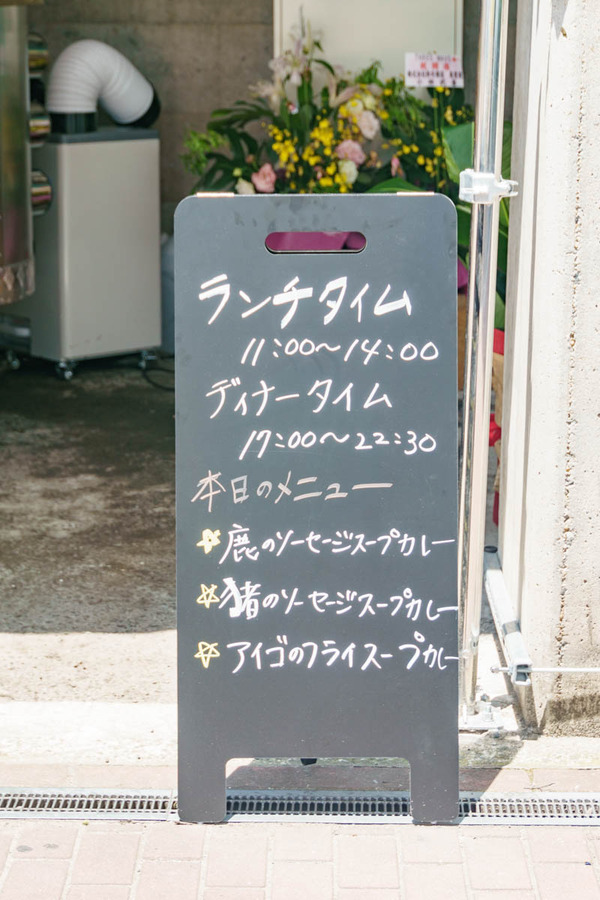 ランチタイム
11:00〜14:00
ディナータイム
17:00〜22:30
本日のメニュー
☆鹿のソーセージスープカレー
☆猪のソーセージスープカレー
☆アイゴのフライスープカレー